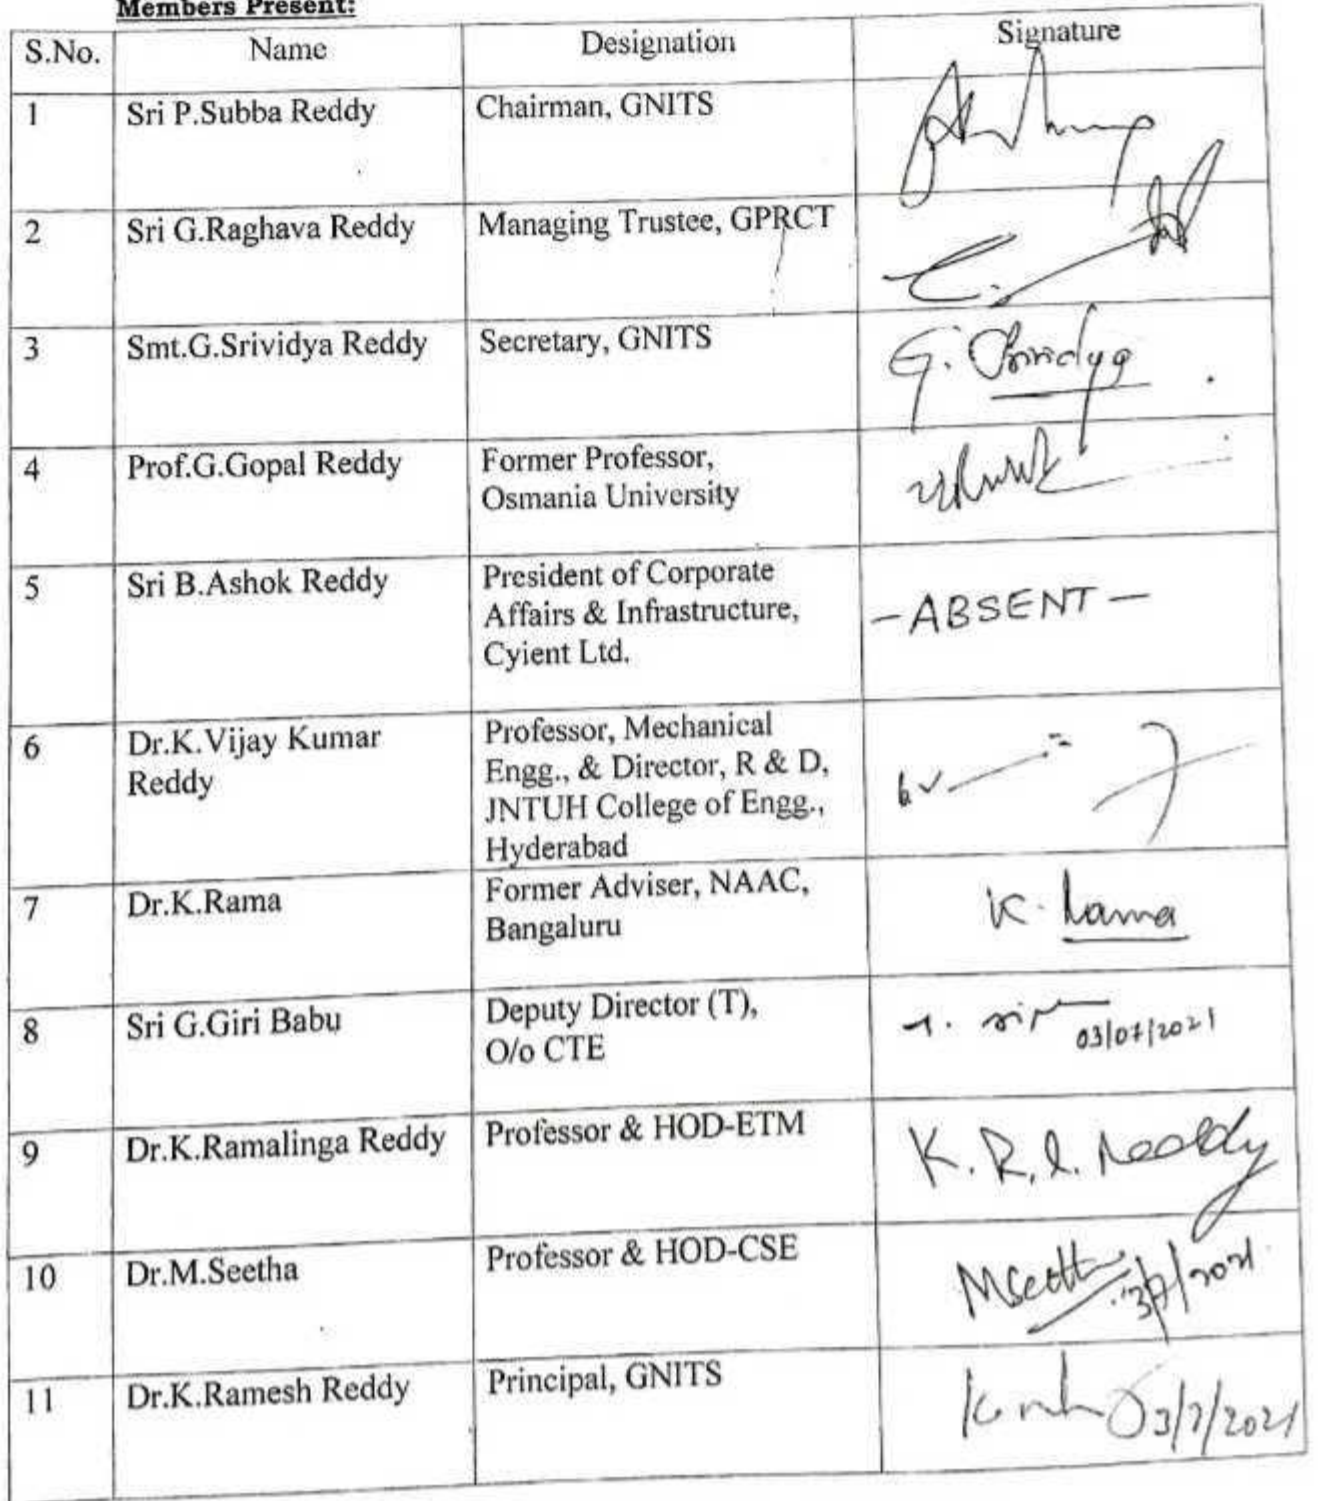 Members Present:
S.No. Name Designation Signature
1 Sri P.Subba Reddy Chairman, GNITS
2 Sri G.Raghava Reddy Managing Trustee, GPRCT
3 Smt.G.Srividya Reddy Secretary, GNITS G. Srividya
4 Prof.G.Gopal Reddy Former Professor,
Osmania University
5 Sri B.Ashok Reddy President of Corporate
Affairs & Infrastructure,
Cyient Ltd.
- ABSENT -
6 Dr.K.Vijay Kumar
Reddy
Professor, Mechanical
Engg., & Director, R & D,
JNTUH College of Engg.,
Hyderabad
7 Dr.K.Rama Former Adviser, NAAC,
Bangaluru
K. Rama
8 Sri G.Giri Babu Deputy Director (T),
O/o CTE
03/07/2021
9 Dr.K.Ramalinga Reddy Professor & HOD-ETM K. R. L. Reddy
10 Dr.M.Seetha Professor & HOD-CSE MSeetha 3/7/2021
11 Dr.K.Ramesh Reddy Principal, GNITS 3/7/2021